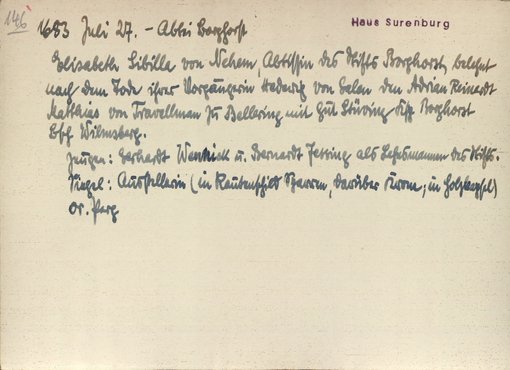 146
Haus Surenburg
1683 Juli 27. - Abtei Borghorst
Elisabeth Sibilla von Nehem, Äbtissin des Stifts Borghorst, belehnt
nach dem Tode ihrer Vorgängerin Hedewig von den Adrian Reinardt
Matthias von Travellman zu mit Gut Stüving Ksp Borghorst
Bsch Wilmsberg.
Zeugen: Gerhardt u. Bernardt als Lehnsmannen des Stifts.
Siegel: Ausstellerin (in Rautenschild Sparren, darüber Krone; in Holzkapsel)
Or. Perg